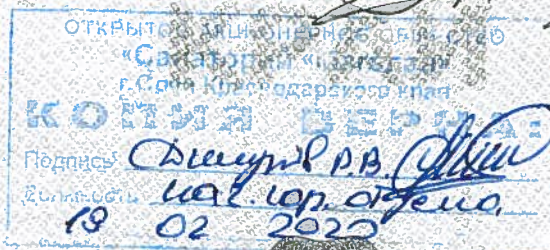 ОТКРЫТОЕ АКЦИОНЕРНОЕ ОБЩЕСТВО
«Санаторий
г. Сочи Краснодарского края
КОПИЯ ВЕРНА
Подпись В.В.
Должность нач. юр. отдела.
19 02 2020